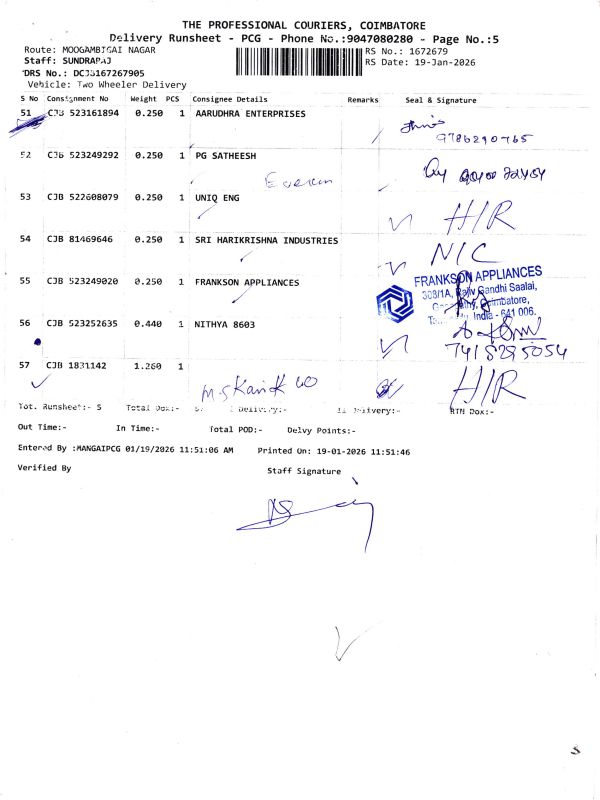 THE PROFESSIONAL COURIERS, COIMBATORE
Delivery Runsheet - PCG - Phone No.:9047080280 - Page No.:5
Route: MOOGAMBIGAI NAGAR RS No.: 1672679
Staff: SUNDRARAJ RS Date: 19-Jan-2026
DRS No.: DCJB167267905
Vehicle: Two Wheeler Delivery
S No Consignment No Weight PCS Consignee Details Remarks Seal & Signature
51 CJB 523161894 0.250 1 AARUDHRA ENTERPRISES
9786290765
52 CJB 523249292 0.250 1 PG SATHEESH
53 CJB 522608079 0.250 1 UNIQ ENG H/R
54 CJB 81469646 0.250 1 SRI HARIKRISHNA INDUSTRIES N/C
55 CJB 523249020 0.250 1 FRANKSON APPLIANCES
FRANKSON APPLIANCES
308/1A, Rajiv Gandhi Saalai,
Coimbatore,
India - 641 006.
56 CJB 523252635 0.440 1 NITHYA 8603
7418295054
57 CJB 1831142 1.260 1 H/R
Tot. Runsheet:- 5 Total Dox:- Delivery:- Delivery:- RTN Dox:-
Out Time:- In Time:- Total POD:- Delvy Points:-
Entered By :MANGAIPCG 01/19/2026 11:51:06 AM Printed On: 19-01-2026 11:51:46
Verified By Staff Signature